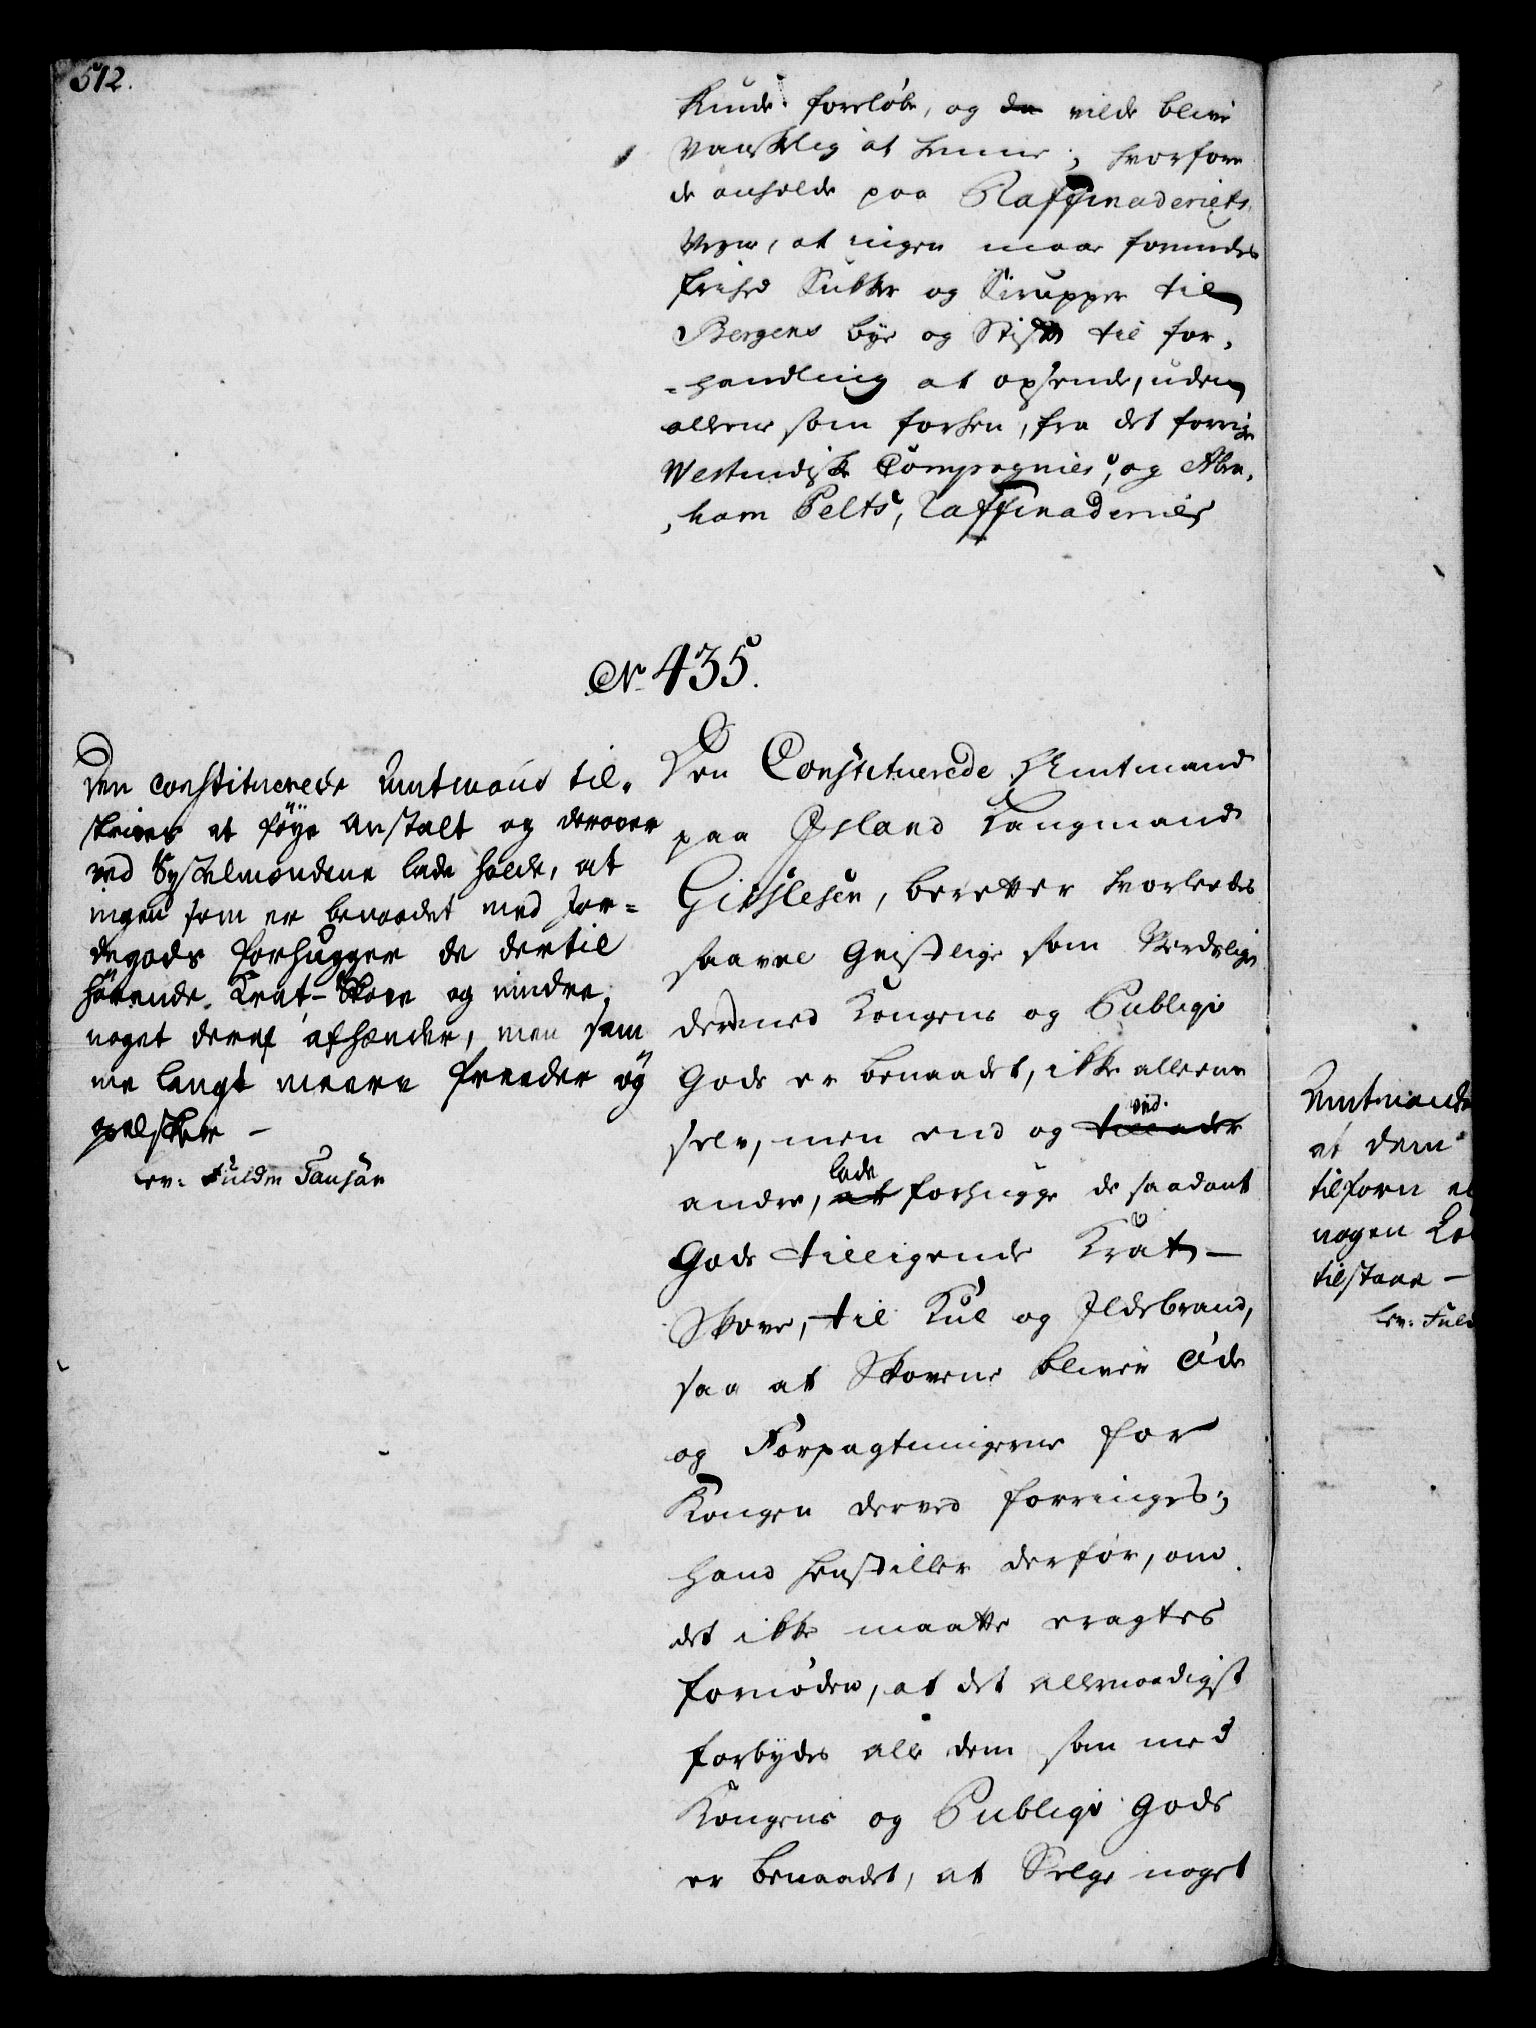 512.
kunde foreløbe, og da vilde blive
vanskelig at hemme; hvorfore
de anholde paa Raffinaderiets
Vegne, at ingen maae forundes
friehed Sukker og Sirupper til
Bergens bye og Stift til for-
-handling at opsende, uden
alleene som forhen, fra det forrige
Westindiske Compagnies, og Abra-
ham Pelts, Raffinaderier
No 435.
Den constituerede Amtmand til-
skrives at føye Anstalt og derover
ved Sysselmændene lade holde, at
ingen som er benaadet med Jor-
degods forhugger de dertil
hörende Krat-Skove og mindre
noget deraf afhænder, men sam
me langt meere freeder og
opelsker -
Den Constituerede Amtmand
paa Island Laugmand
Gisslesen, beretter hvorledes
saavel Geistlige som Verdslige
der med Kongens og Publiqve
Gods er benaadet, ikke alleene
selv, men end og tillader ved
andre, at lade forhugge de saadant
Gods tilligende Krat-
Skove, til Kul og Ildebrand,
saa at Skovene bliver Øde
og Forpagtningerne for
Kongen derved forringes;
hand henstiller derfor, om
det ikke maatte eragtes
fornøden, at det allernaadigst
forbydes alle dem som med
Kongens og Publiqve Gods
er benaadet, at Selge noget
Amtmande
at dem
tilforn
nogen
tilstaae -